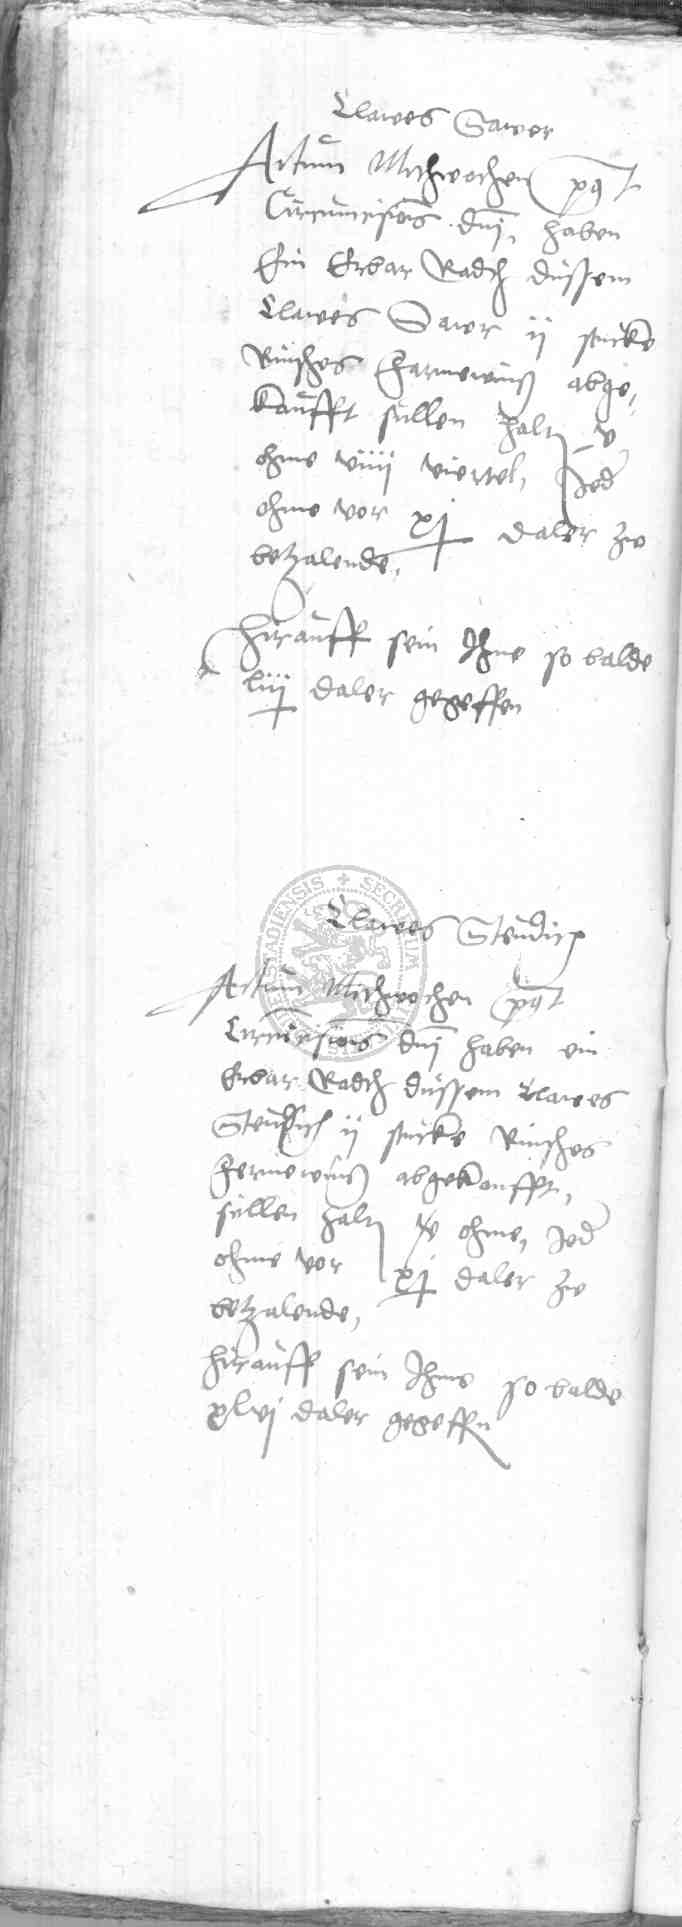 Clawes Sawer
Actum Mithwochen post
Circumcisionis dnj, haben
Ein Erbar Radth dussem
Clawes Sawer ij stucke
Rinsches Farnewins abge,
kaufft sullen halt v
ohme viiij viertel, Jed
ohme vor xj daler zw
betzalende,
Hirauff sein Jhme so balde
liiij daler gegeffen
Clawes
Actum Mithwochen post
Circumcisionis dnj haben ein
Erbar Radth dussem Clawes
ij stucke Rinsches
Fernewins abgekaufft,
sullen halt ohme, Jed
ohme vor xj daler zw
betzalende,
Hirauff sein Jhme so balde
xlvj daler gegeffn
SECRETUM